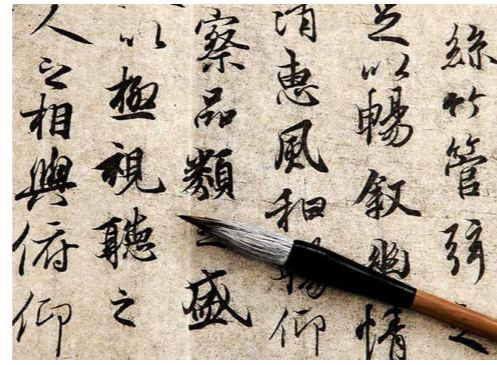 絲竹管弦之
足以暢叙幽情
清惠風和暢仰
察品類之盛
以極視聽之
人之相與俯仰